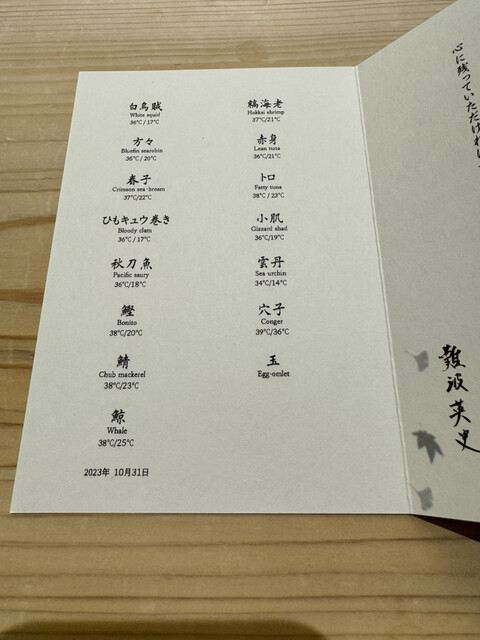 白烏賊
White squid
36℃ / 17℃
方々
Bluefin searobin
36℃ / 20℃
春子
Crimson sea-bream
37℃/22℃
ひもキュウ巻き
Bloody clam
36℃ / 17℃
秋刀魚
Pacific saury
36℃/18℃
鰹
Bonito
38℃/20℃
鯖
Chub mackerel
38℃/23℃
鯨
Whale
38℃/25℃
縞海老
Hokkai shrimp
37℃/21℃
赤身
Lean tuna
36℃/21℃
トロ
Fatty tuna
38℃ / 23℃
小肌
Gizzard shad
36℃/19℃
雲丹
Sea urchin
34℃/14℃
穴子
Conger
39℃/36℃
玉
Egg-omlet
2023年 10月31日
心に残っていただければ
難波英史